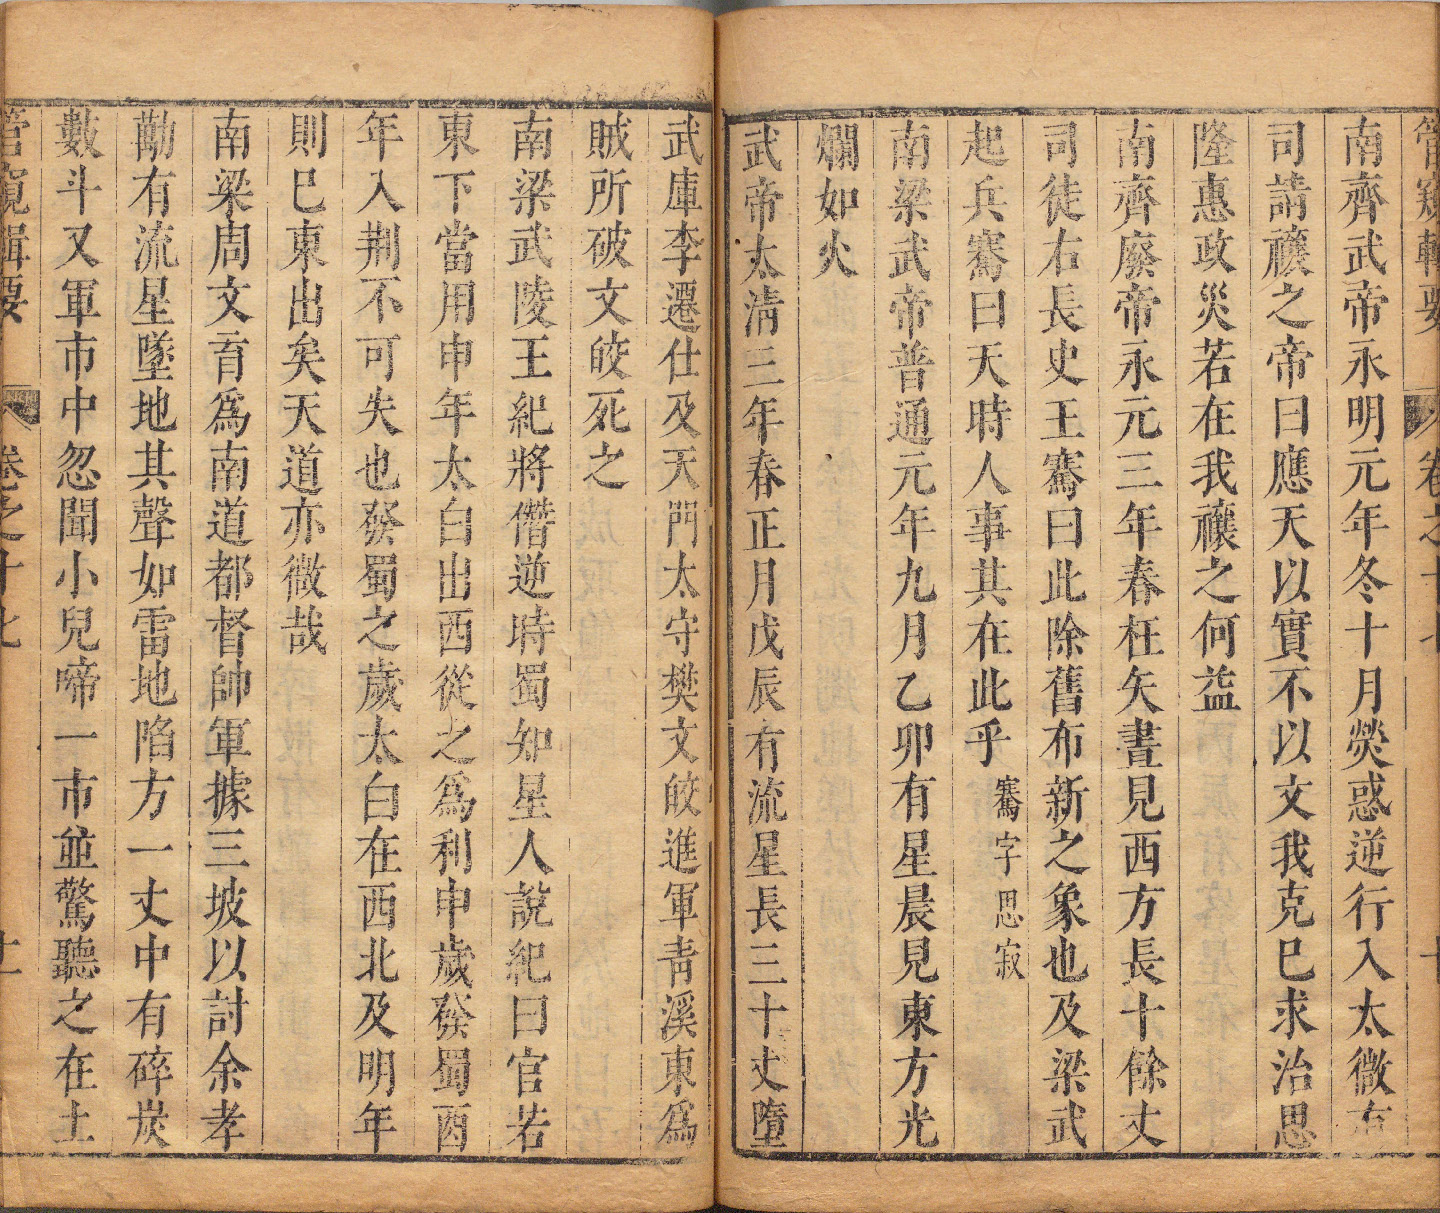 管窺輯要 卷之十七 十
南齊武帝永明元年冬十月熒惑逆行入太微有
司請禳之帝曰應天以實不以文我克巳求治思
隆惠政災若在我禳之何益
南齊廢帝永元三年春枉矢晝見西方長十餘丈
司徒右長史王騫曰此除舊布新之象也及梁武
起兵騫曰天時人事其在此乎 騫字思寂
南梁武帝普通元年九月乙卯有星晨見東方光
爛如火
武帝太淸三年春正月戊辰有流星長三十丈墮
武庫李遷仕及天門太守樊文皎進軍靑溪東爲
賊所破文皎死之
南梁武陵王紀將僭逆時蜀知星人說紀曰官若
東下當用申年太白出西從之爲利申歲發蜀酉
年入荆不可失也發蜀之歲太白在西北及明年
則巳東出矣天道亦微哉
南梁周文育爲南道都督帥軍據三坡以討余孝
勱有流星墜地其聲如雷地陷方一丈中有碎炭
數斗又軍市中忽聞小兒啼一市並驚聽之在土
管窺輯要 卷之十七 十一